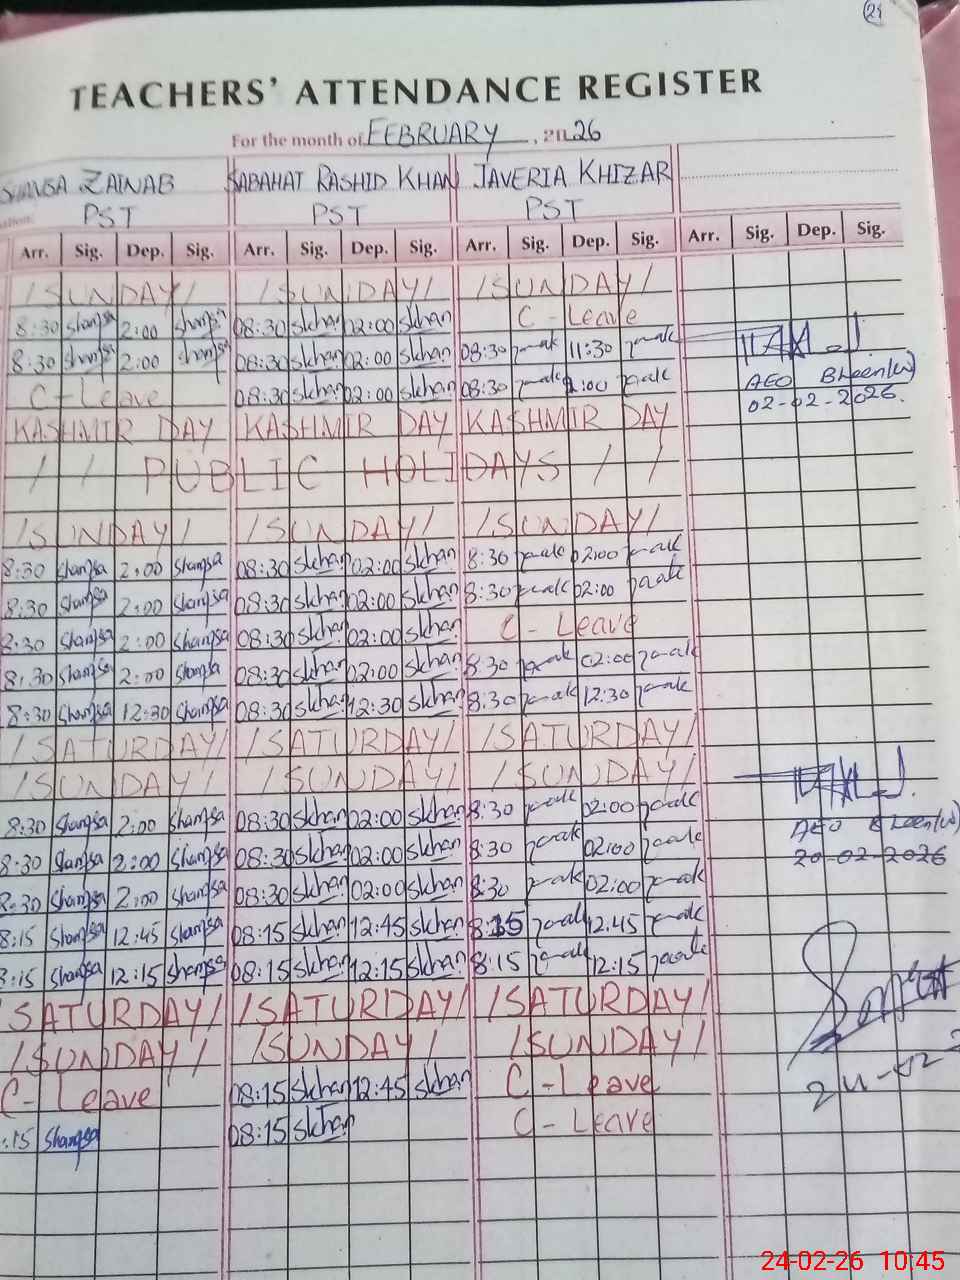 21
TEACHERS' ATTENDANCE REGISTER
For the month of FEBRUARY, 2026
SHANSA ZAINAB SABAHAT RASHID KHAN JAVERIA KHIZAR
PST PST PST
Arr. Sig. Dep. Sig. Arr. Sig. Dep. Sig. Arr. Sig. Dep. Sig. Arr. Sig. Dep. Sig.
/SUNDAY/ /SUNDAY/ /SUNDAY/
8:30 Shansa 2:00 Shansa 08:30 Skhan 02:00 Skhan C - Leave
8:30 Shansa 2:00 Shansa 08:30 Skhan 02:00 Skhan 08:30 11:30
C - Leave 08:30 Skhan 02:00 Skhan 08:30 2:00
AEO Bheen(w)
02-02-2026.
KASHMIR DAY KASHMIR DAY KASHMIR DAY
/ / PUBLIC HOLIDAYS / /
/SUNDAY/ /SUNDAY/ /SUNDAY/
8:30 Shansa 2:00 Shansa 08:30 Skhan 02:00 Skhan 8:30 02:00
8:30 Shansa 2:00 Shansa 08:30 Skhan 02:00 Skhan 8:30 02:00
8:30 Shansa 2:00 Shansa 08:30 Skhan 02:00 Skhan C - Leave
8:30 Shansa 2:00 Shansa 08:30 Skhan 02:00 Skhan 8:30 02:00
8:30 Shansa 12:30 Shansa 08:30 Skhan 12:30 Skhan 8:30 12:30
/SATURDAY/ /SATURDAY/ /SATURDAY/
/SUNDAY/ /SUNDAY/ /SUNDAY/
8:30 Shansa 2:00 Shansa 08:30 Skhan 02:00 Skhan 8:30 02:00
AEO Bheen(w)
8:30 Shansa 2:00 Shansa 08:30 Skhan 02:00 Skhan 8:30 02:00
20-02-2026
8:30 Shansa 2:00 Shansa 08:30 Skhan 02:00 Skhan 8:30 02:00
8:15 Shansa 12:45 Shansa 08:15 Skhan 12:45 Skhan 8:15 12.45
8:15 Shansa 12:15 Shansa 08:15 Skhan 12:15 Skhan 8:15 12:15
SATURDAY/ /SATURDAY/ /SATURDAY/
/SUNDAY/ /SUNDAY/ /SUNDAY/
C - Leave 08:15 Skhan 12:45 Skhan C - Leave
:15 Shansa 08:15 Skhan C - Leave
24-02-26 10:45